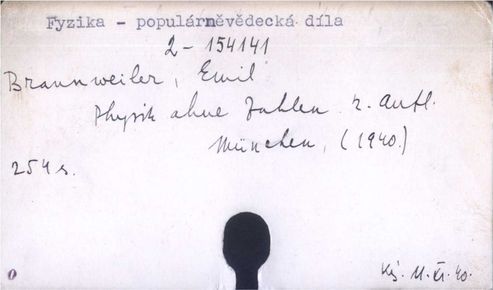 Fyzika - populárněvědecká díla
2-154141
Braunweiler, Emil
Physik ohne Zahlen. 2. Aufl.
München, (1940.)
254 s.
0
Kj. 11.XI.40.